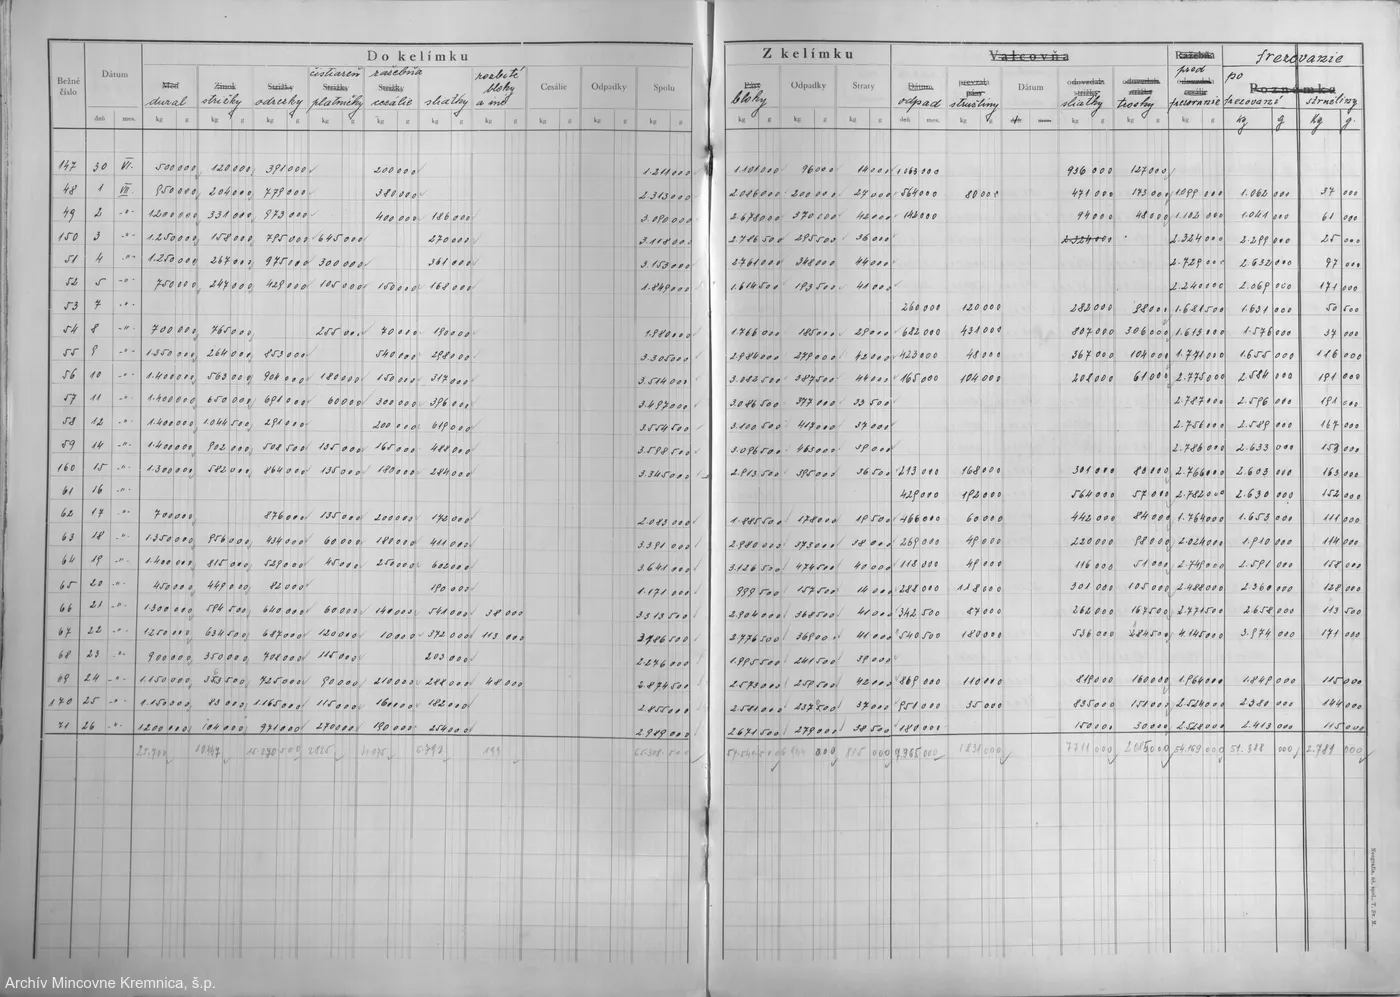 Do kelímku
Bežné číslo Dátum Meď Zinok Strižky čistiareň Strižky ražebňa Strižky rozbité bloky a mô Cesálie Odpadky Spolu
dural strižky odrezky platničky cezálie sliatky
deň mes. kg g kg g kg g kg g kg g kg g kg g kg g kg g kg g
147 30 VI. 500000 120000 391000 200000 1.211000
48 1 VII. 950000 204000 779000 380000 2.313000
49 2 -"- 1200000 331000 973000 400000 186000 3.090000
150 3 -"- 1.250000 158000 795000 645000 270000 3.118000
51 4 -"- 1.250000 267000 975000 300000 361000 3.153000
52 5 -"- 750000 247000 429000 105000 150000 168000 1.849000
53 7 -"-
54 8 -"- 700000 765000 255000 70000 190000 1.980000
55 9 -"- 1.350000 264000 853000 540000 298000 3.305000
56 10 -"- 1.400000 563000 904000 180000 150000 317000 3.514000
57 11 -"- 1.400000 650000 691000 60000 300000 396000 3.497000
58 12 -"- 1.400000 1.044500 291000 200000 619000 3.554500
59 14 -"- 1.400000 902000 508500 135000 165000 488000 3.598500
160 15 -"- 1.300000 582000 864000 135000 180000 284000 3.345000
61 16 -"-
62 17 -"- 700000 876000 135000 200000 172000 2.083000
63 18 -"- 1.350000 956000 434000 60000 180000 411000 3.391000
64 19 -"- 1.400000 815000 529000 45000 250000 602000 3.641000
65 20 -"- 450000 449000 82000 190000 1.171000
66 21 -"- 1300000 594500 640000 60000 140000 541000 38000 3313500
67 22 -"- 1250000 634500 687000 120000 10000 372000 113000 3186500
68 23 -"- 900000 350000 708000 115000 203000 2.276000
69 24 -"- 1.150000 353500 725000 90000 210000 288000 48000 2.874500
170 25 -"- 1.150000 83000 1165000 115000 160000 182000 2.855000
71 26 -"- 1200000 104000 971000 270000 190000 254000 2.989000
Z kelímku Valcovňa Ražebňa frezovanie
Odpadky Straty Dátum pred po Poznámka
bloky odpad stružliny sliatky trosky frezovanie frezovaní stružliny
kg g kg g kg g deň mes. kg g kg g kg g kg g kg g kg g
1.101000 96000 14000 1.063000 936000 127000
2.086000 200000 27000 564000 80000 471000 173000 1.099000 1.062000 37000
2.678000 370000 42000 142000 94000 48000 1.102000 1.041000 61000
2.786500 295500 36000 2.324000 2.324000 2.299000 25000
2.761000 348000 44000 2.729000 2.632000 97000
1.614500 193500 41000 2.240000 2.069000 171000
260000 120000 282000 98000 1.681500 1.631000 50500
1.766000 185000 29000 682000 431000 807000 306000 1.613000 1.576000 37000
2.984000 279000 42000 423000 48000 367000 104000 1.771000 1.655000 116000
3.082500 387500 44000 165000 104000 208000 61000 2.775000 2.584000 191000
3.086500 377000 33500 2.787000 2.596000 191000
3.100500 417000 37000 2.756000 2.589000 167000
3.096500 463000 39000 2.786000 2.633000 153000
2.913500 395000 36500 213000 168000 301000 80000 2.766000 2.603000 163000
429000 192000 564000 57000 2.782000 2.630000 152000
1.885500 178000 19500 466000 60000 442000 84000 1.764000 1.653000 111000
2.980000 373000 38000 269000 49000 220000 98000 2.024000 1.910000 114000
3.126500 474500 40000 118000 49000 116000 51000 2.749000 2.591000 158000
999500 157500 14000 288000 118000 301000 105000 2.488000 2.360000 128000
2.904000 368500 41000 342500 87000 262000 167500 2.771500 2.658000 113500
2.776500 369000 41000 540500 180000 536000 184500 4.145000 3.974000 171000
1.995500 241500 39000
2.573000 259500 42000 869000 110000 819000 160000 1.964000 1.849000 115000
2.581000 237500 37000 951000 35000 835000 151000 2.524000 2.380000 144000
2.671500 279000 38500 180000 150000 30000 2.528000 2.413000 115000
7711000 2.015000 54.169000 51.388000 2.781000
Neografia, úč. spol., T. Sv. M.
Archív Mincovne Kremnica, š.p.